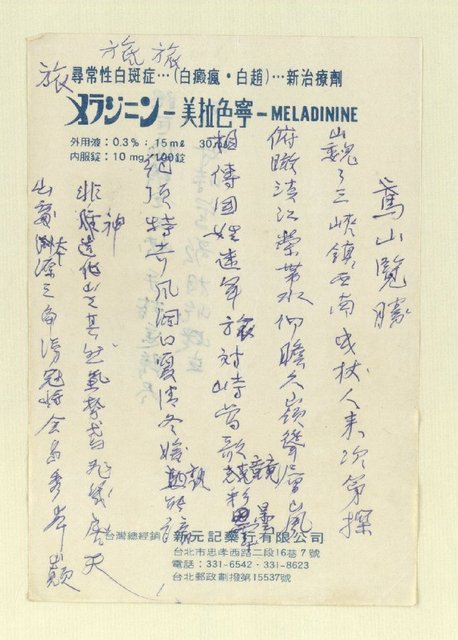 旅 旅
旅
尋常性白斑症…(白癜瘋・白趙)…新治療劑
メラジニン－美拉色寧－MELADININE
外用液：0.3%：15mℓ 30
内服錠：10mg：100錠
鳶山覽勝
巍々三峽鎮西南曳杖人来次第探
俯瞰江縈帶水仰瞻大嶺聳層嵐
相傳國姓建軍旅對峙鶯歌競彩曇
絕頂特奇風洞口夏清冬煖孰能諳
非神造化出其然氣勢幾磨天
山三角湧冠秀巔
台灣總經銷 新元記藥行有限公司
台北市忠孝西路二段16巷7號
電話：331-6542・331-8623
台北郵政劃撥第15537號